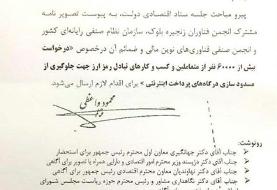 پیرو مباحث جلسه ستاد اقتصادی دولت، به پیوست تصویر نامه
مشترک انجمن فناوران زنجیره بلوک، سازمان نظام صنفی رایانه‌ای کشور
و انجمن صنفی فناوری‌های نوین مالی و ضمائم آن درخصوص «درخواست
بیش از ۶۰۰۰۰ نفر از متعاملین و کسب و کارهای تبادل رمز ارز جهت جلوگیری از
مسدود سازی درگاه‌های پرداخت اینترنتی» برای اقدام لازم ارسال می‌شود.
محمود واعظی
رونوشت:
جناب آقای دکتر جهانگیری معاون اول محترم رئیس جمهور برای استحضار
جناب آقای دکتر دژپسند وزیر محترم امور اقتصادی و دارایی همراه با تصویر برای آگاهی
جناب آقای دکتر نهاوندیان معاون محترم اقتصادی رئیس جمهور برای آگاهی
جناب آقای دکتر نگاهداری مشاور و رئیس محترم حوزه ریاست مجلس شورای